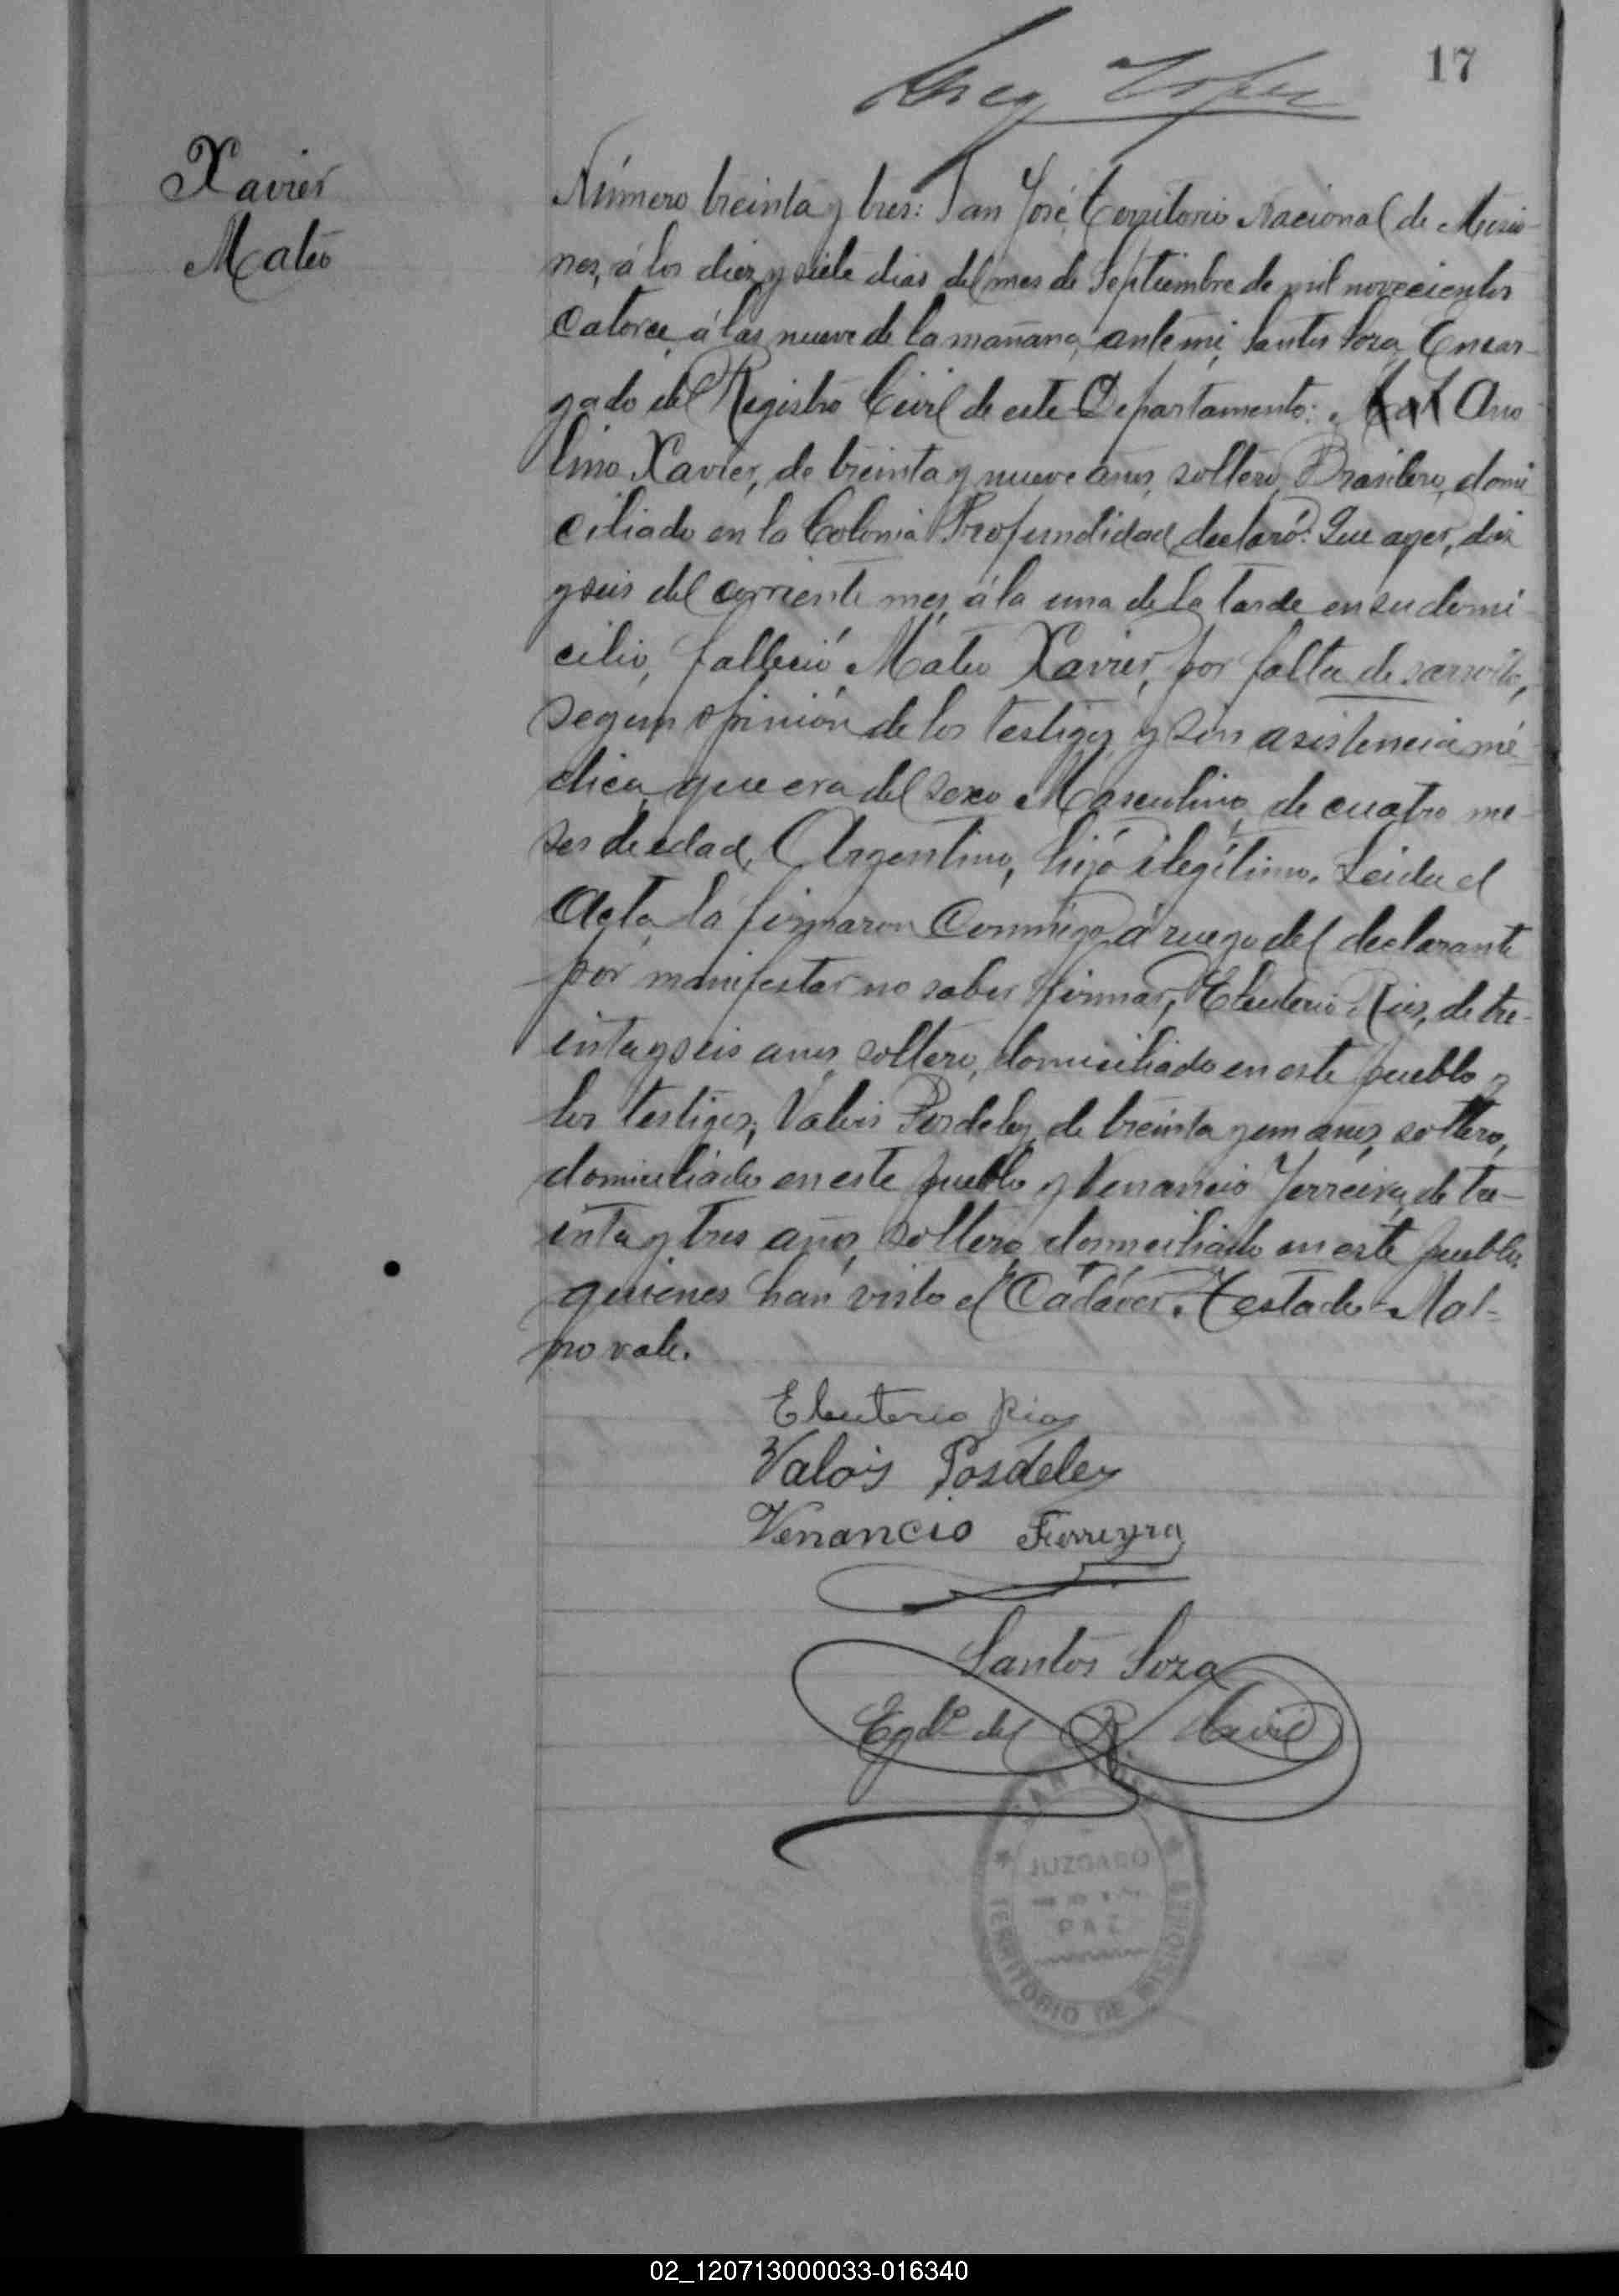 17
Xavier
Mateo
Número treinta y tres: San José, Territorio Nacional de Misio-
nes, á los diez y siete dias del mes de Septiembre de mil novecientos
catorce, á las nueve de la mañana, ante mi, Santos Soza, Encar-
gado del Registro Civil de este Departamento: Mat Ano
lino Xavier, de treinta y nueve años, soltero, Brasilero, domi
ciliado en la Colonia Profundidad declaró: Que ayer, diez
y seis del corriente mes, á la una de la tarde en su domi
cilio, falleció Mateo Xavier, por falta de
segun opinión de los testigos y sin asistencia mé
dica, que era del sexo Masculino, de cuatro me-
ses de edad, Argentino, hijo ilegítimo. Leida el
Acta, la firmaron conmigo, á ruego del declarante
por manifestar no saber firmar, Eleuterio Rios, de tre-
inta y seis anos, soltero, domiciliado en este pueblo y
los testigos; Valois Posdeley, de treinta y un anos, soltero,
domiciliado en este pueblo y Venancio Ferreira, de tre-
inta y tres años, soltero, domiciliado en este pueblo,
quienes han visto el Cadáver. Testado - Mat -
no vale.
Eleuterio Rios
Valois Posdeley
Venancio Ferreyra
Santos Soza
Egdo del R. Civil
SAN JOSE
JUZGADO
DE
PAZ
TERRITORIO DE MISIONES
02_120713000033-016340